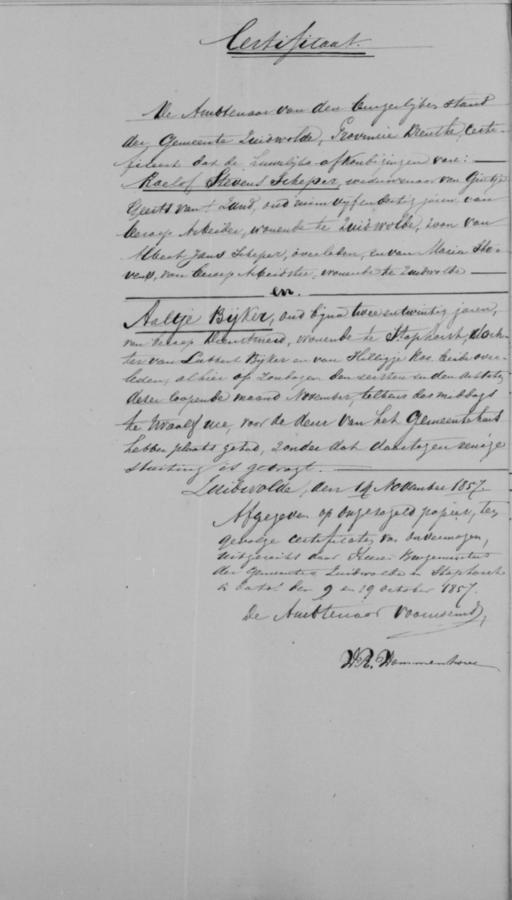 Certificaat.
De Ambtenaar van den burgerlijken stand
der Gemeente Zuidwolde, Provincie Drenthe, certi-
ficeert dat de huwelijks afkondigingen van: —
Roelof Stevens Scheper, weduwenaar van Grietje
Geerts van 't Zand, oud ruim vijfendertig jaren, van
beroep Arbeider, wonende te Zuidwolde, zoon van
Albert Jans Scheper, overleden, en van Maria Ste-
vens, van beroep Arbeidster, wonende te Zuidwolde —
en.
Aaltje Bijker, oud bijna twee en twintig jaren,
van beroep Dienstmeid, wonende te Staphorst, doch-
ter van Lubbert Bijker en van Hilligje Kos, beide over-
leden, alhier op Zondagen den eersten en den achtsten
dezer loopende maand November, telkens des middags
te twaalf ure, voor de deur van het Gemeentehuis
hebben plaats gehad, zonder dat daartegen eenige
stuiting is gebragt.
Zuidwolde, den 14 November 1857.
Afgegeven op ongezegeld papier, ten
gevolge certificaten van onvermogen,
uitgereikt door Heeren Burgemeesters
der Gemeenten Zuidwolde en Staphorst
de dato den 9 en 19 October 1857.
De Ambtenaar voornoemd,